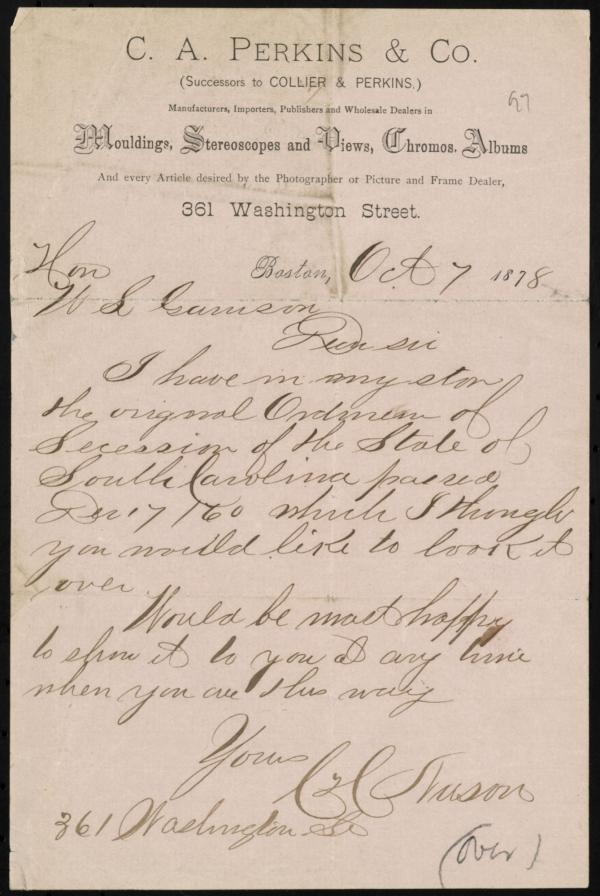 C. A. PERKINS & CO.
(Successors to COLLIER & PERKINS.)
Manufacturers, Importers, Publishers and Wholesale Dealers in
Mouldings, Stereoscopes and Views, Chromos. Albums
And every Article desired by the Photographer or Picture and Frame Dealer,
361 Washington Street.
Boston, Oct 7 1878
Hon
W L Garrison
Dear sir
I have in my store
the original Ordinence of
Secession of the State of
South Carolina passed
Dec 17 /60 which I thought
you would like to look it
over
Would be most happy
to show it to you at any time
when you are this way
Yours
361 Washington St
(over)